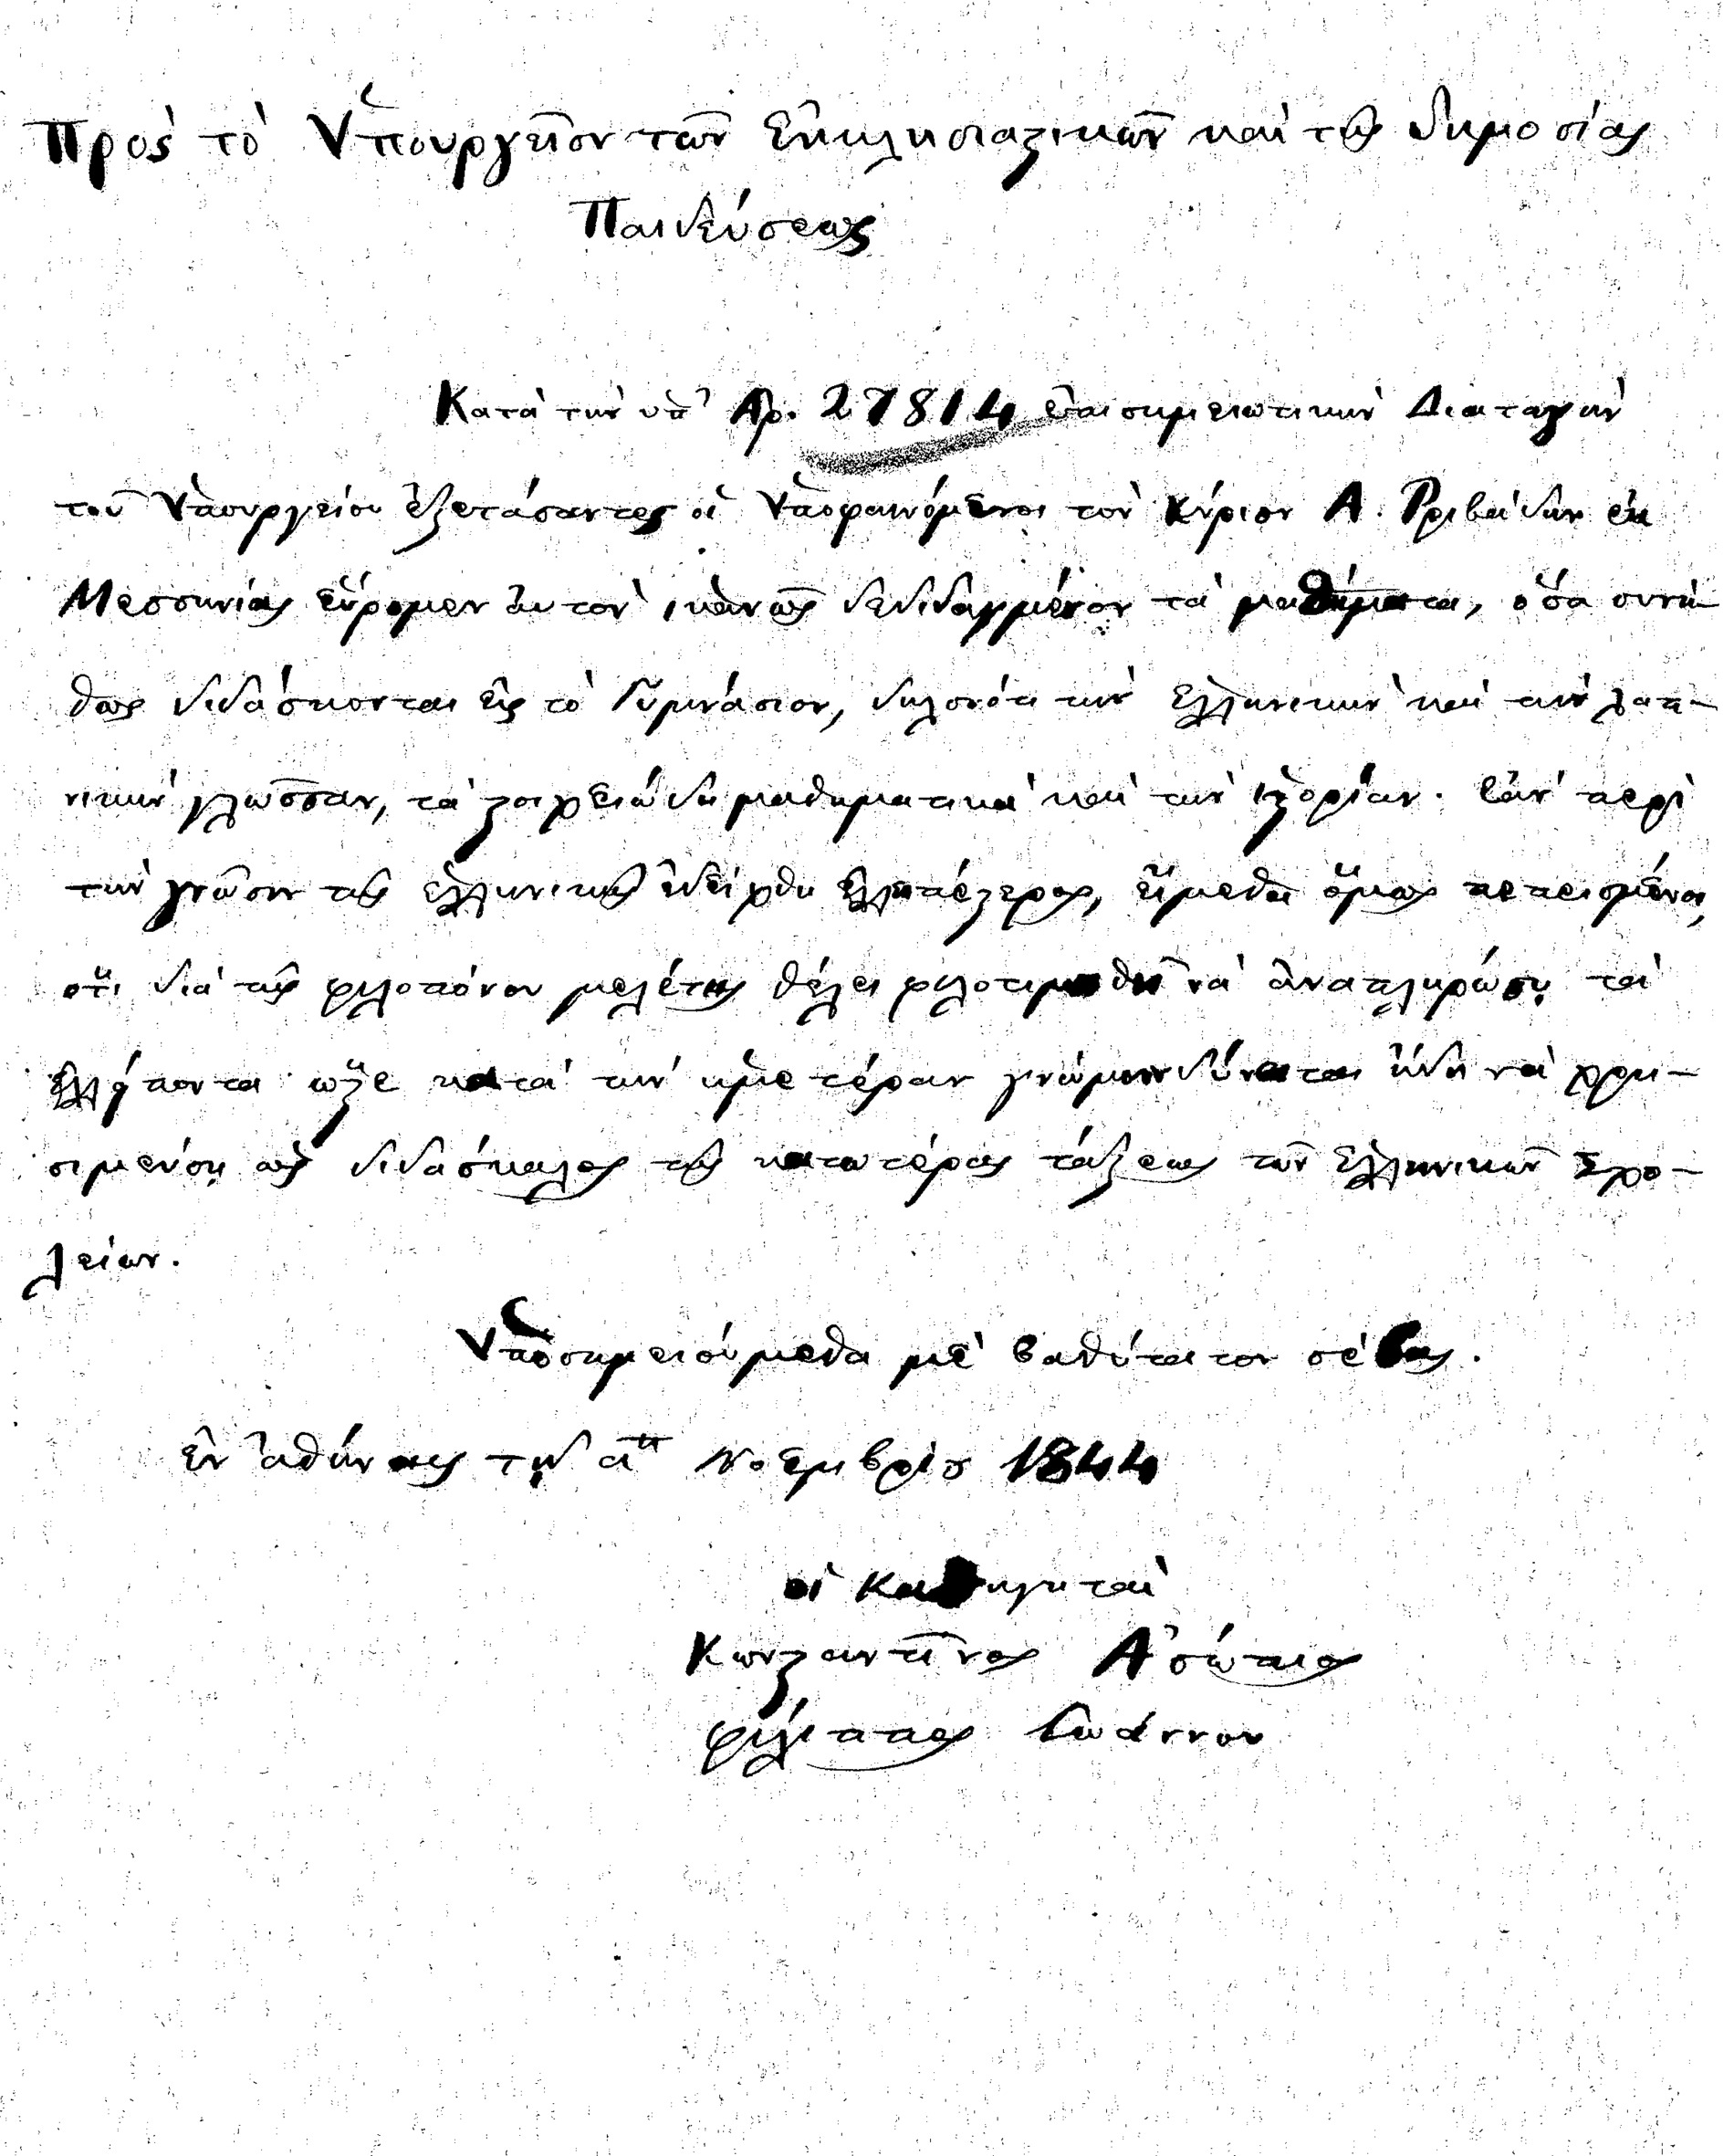 Πρὸς τὸ Ὑπουργεῖον τῶν Ἐκκλησιαστικῶν καὶ τῆς δημοσίας
Παιδεύσεως
Κατὰ τὴν ὑπ' Ἀρ. 27814 ἐπισημειωτικὴν Διαταγὴν
τοῦ Ὑπουργείου ἐξετάσαντες οἱ Ὑποφαινόμενοι τὸν Κύριον Α. ἐκ
Μεσσηνίας εὕρομεν αὐτὸν ἱκανῶς δεδιδαγμένον τὰ μαθήματα, ὅσα συνή-
θως διδάσκονται εἰς τὸ Γυμνάσιον, δηλονότι τὴν Ἑλληνικὴν καὶ τὴν λατι-
νικὴν γλῶσσαν, τὰ στοιχειώδη μαθηματικὰ καὶ τὴν ἱστορίαν. Ἐὰν περὶ
τὴν γνῶσιν τῆς ἑλληνικῆς ἐδείχθη ἐλλιπέστερος, εἴμεθα ὅμως πεπεισμένοι,
ὅτι διὰ τῆς φιλοπόνου μελέτης θέλει φιλοτιμηθῆ νὰ ἀναπληρώσῃ τὰ
ἐλλείποντα ὥστε κατὰ τὴν ἡμετέραν γνώμην δύναται ἤδη νὰ χρη-
σιμεύσῃ ὡς διδάσκαλος τῆς κατωτέρας τάξεως τῶν Ἑλληνικῶν Σχο-
λείων.
Ὑποσημειούμεθα μὲ βαθύτατον σέβας.
Ἐν Ἀθήναις τῇ αῃ Νοεμβρίου 1844
οἱ Καθηγηταὶ
Κωνσταντῖνος Ἀσώπιος
Φίλιππος Ἰωάννου